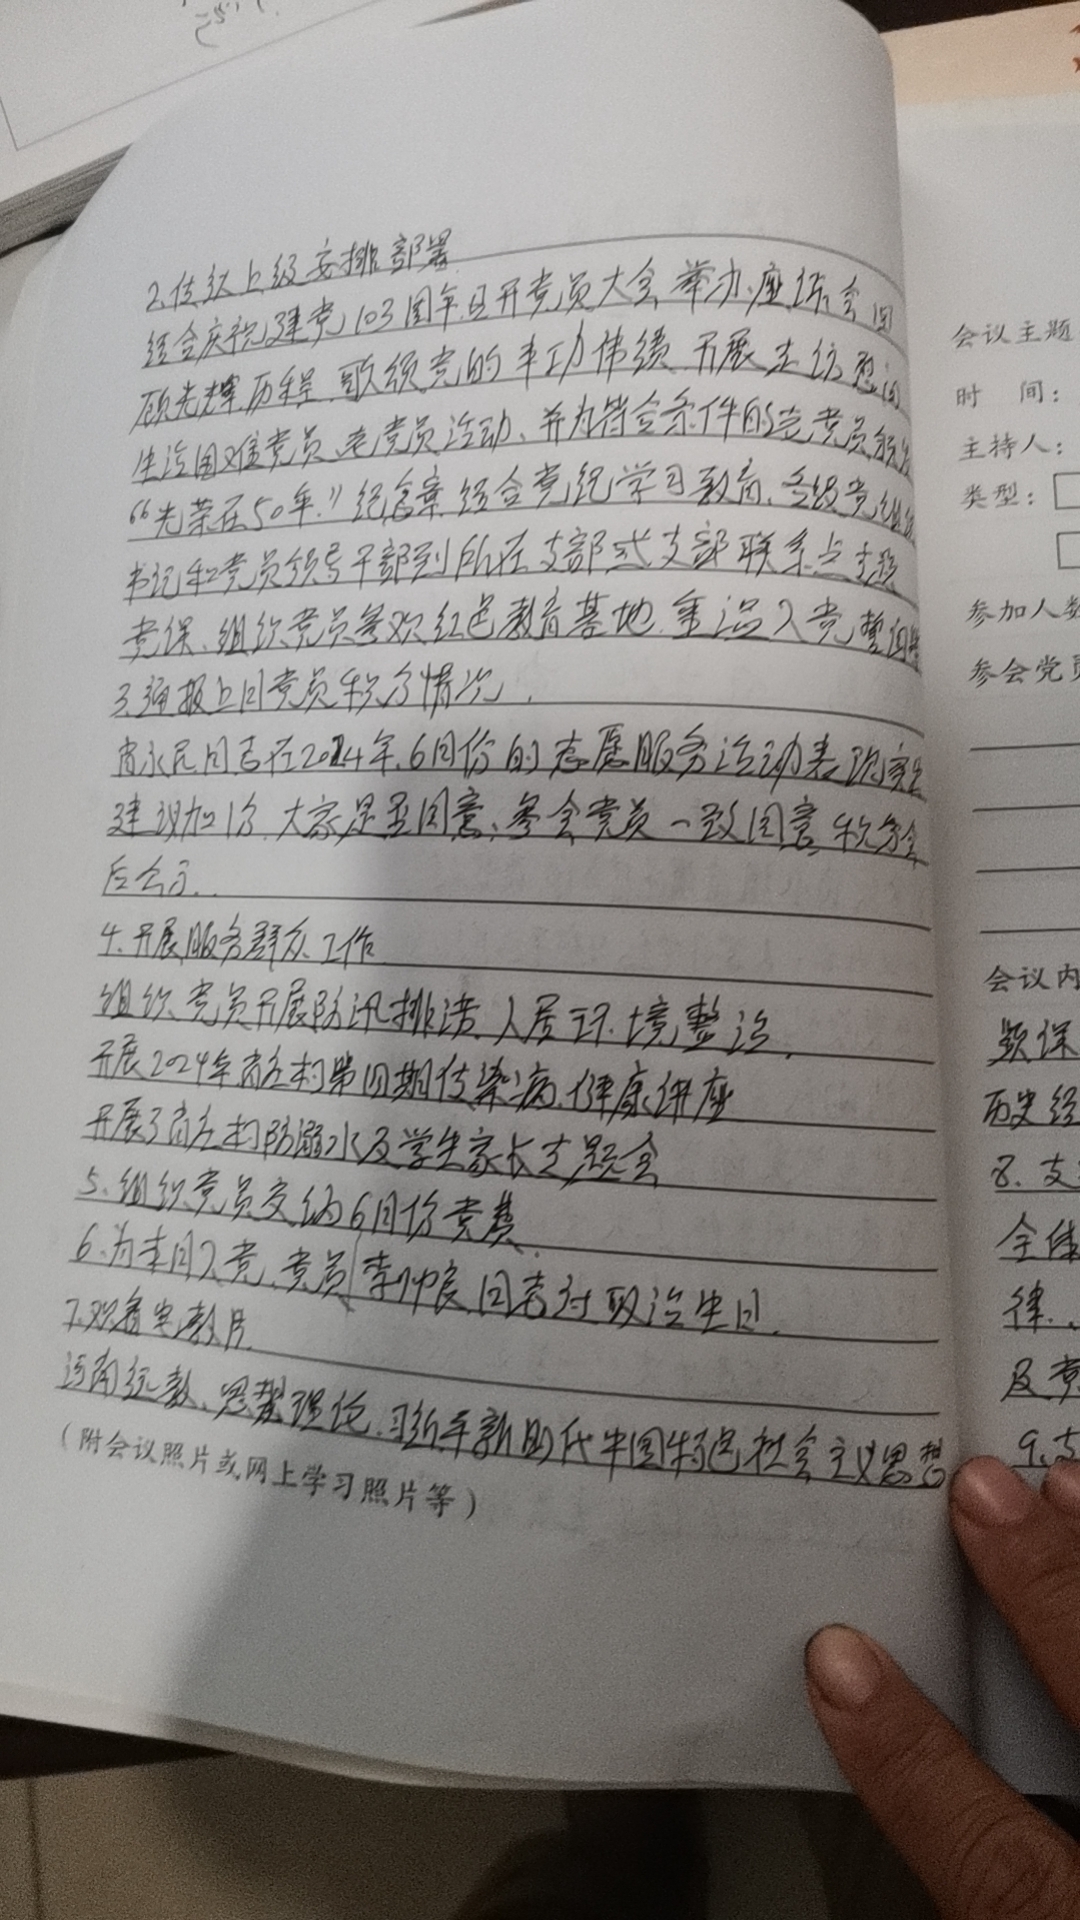 2.传达上级安排部署
结合庆祝建党103周年召开党员大会,举办座谈会,回
顾光辉历程,歌颂党的丰功伟绩,开展走访慰问
生活困难党员、老党员活动,并为符合条件的老党员颁发
“光荣在50年”纪念章,结合党纪学习教育,各级党组织
书记和党员领导干部到所在支部或支部联系点主题
党课、组织党员参观红色教育基地,重温入党誓词
3.通报上月党员积分情况.
同志在2024年6月份的志愿服务活动表现突出
建议加1分,大家是否同意,参会党员一致同意,积分会
后公示.
4.开展服务群众工作
组织党员开展防汛排涝,人居环境整治.
开展2024年村第四期传染病健康讲座
开展了村防溺水及学生家长主题会
5.组织党员交纳6月份党费.
6.为本月入党,党员李同志过政治生日.
7.观看电教片.
河南远教、思想理论,习近平新时代中国特色社会主义思想
(附会议照片或网上学习照片等)
会议主题
时 间:
主持人:
类型:
参加人数
参会党员
会议内
题课
历史经
8.支
全体
律.
及党
9.支